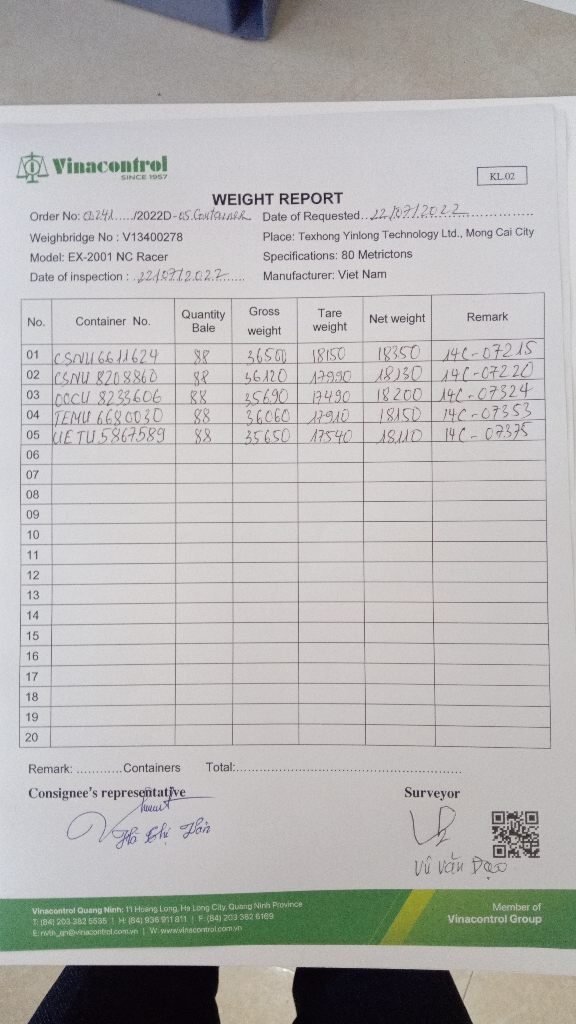 Vinacontrol
SINCE 1957
KL.02
WEIGHT REPORT
Order No: ...../2022D-05 Container Date of Requested...22/07/2022
Weighbridge No : V13400278 Place: Texhong Yinlong Technology Ltd., Mong Cai City
Model: EX-2001 NC Racer Specifications: 80 Metrictons
Date of inspection : .22/07/2022 Manufacturer: Viet Nam
No. Container No. Quantity Bale Gross weight Tare weight Net weight Remark
01 CSNU 6611624 88 36500 18150 18350 14C-07215
02 CSNU 8208860 88 36120 17990 18130 14C-07220
03 OOCU 8233606 88 35690 17490 18200 14C-07324
04 TEMU 6680030 88 36060 17910 18150 14C-07353
05 UETU 5867589 88 35650 17540 18110 14C-07375
06
07
08
09
10
11
12
13
14
15
16
17
18
19
20
Remark: ............Containers Total:
Consignee's representative Surveyor
Vũ Văn Đạo
Vinacontrol Quang Ninh: 11 Hoang Long, Ha Long City, Quang Ninh Province
T: (84) 203 382 5535 | H: (84) 936 911 811 | F: (84) 203 382 6169
E: nvth_qn@vinacontrol.com.vn | W: www.vinacontrol.com.vn
Member of
Vinacontrol Group